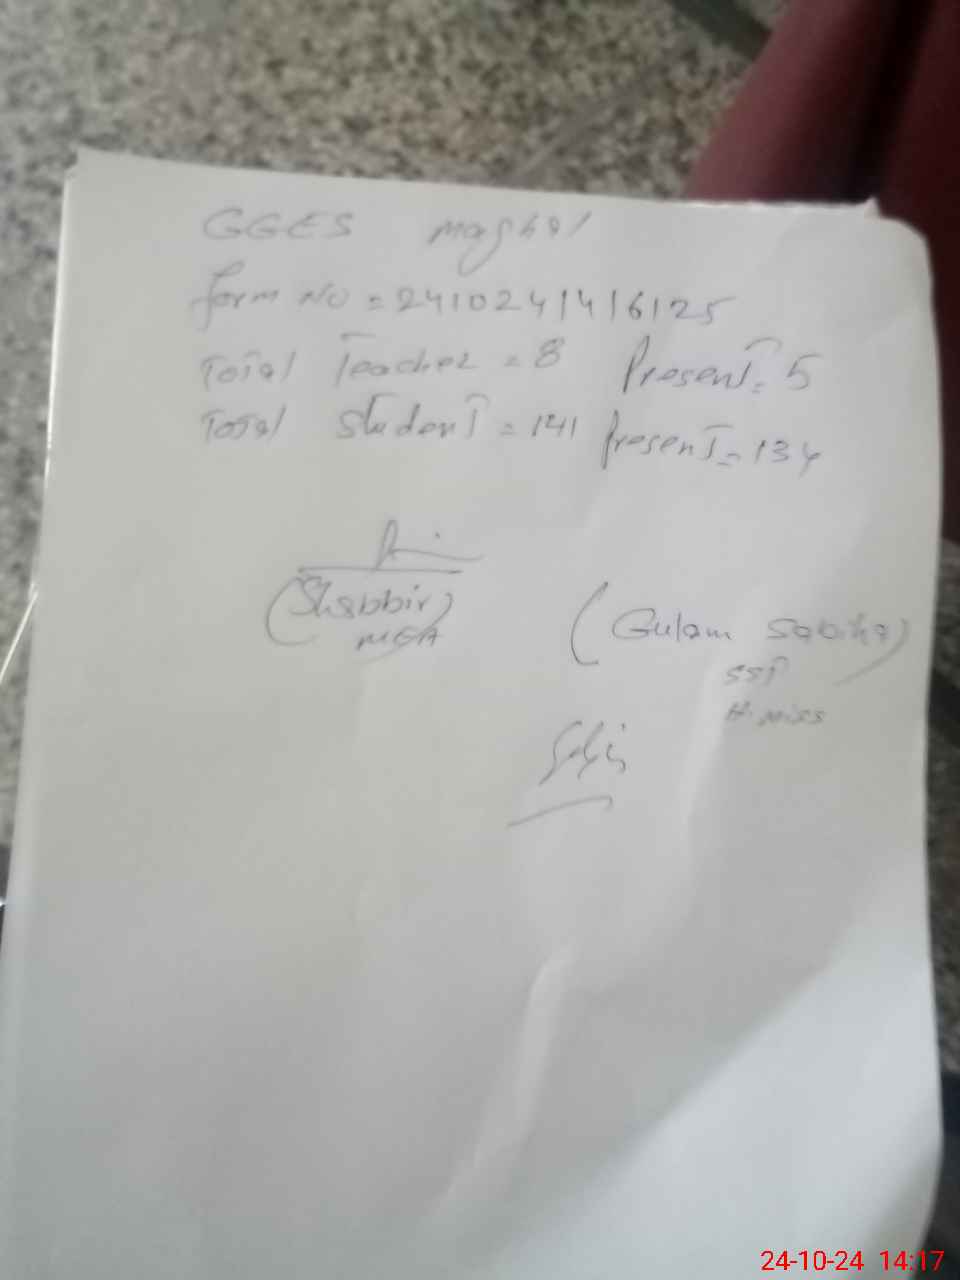 GGES Maghal
form No = 2410241416125
Total Teacher = 8 Present = 5
Total Student = 141 Present = 134
(Shabbir)
MEA
(Gulam Sabiha)
SST
H. Miss
24-10-24 14:17